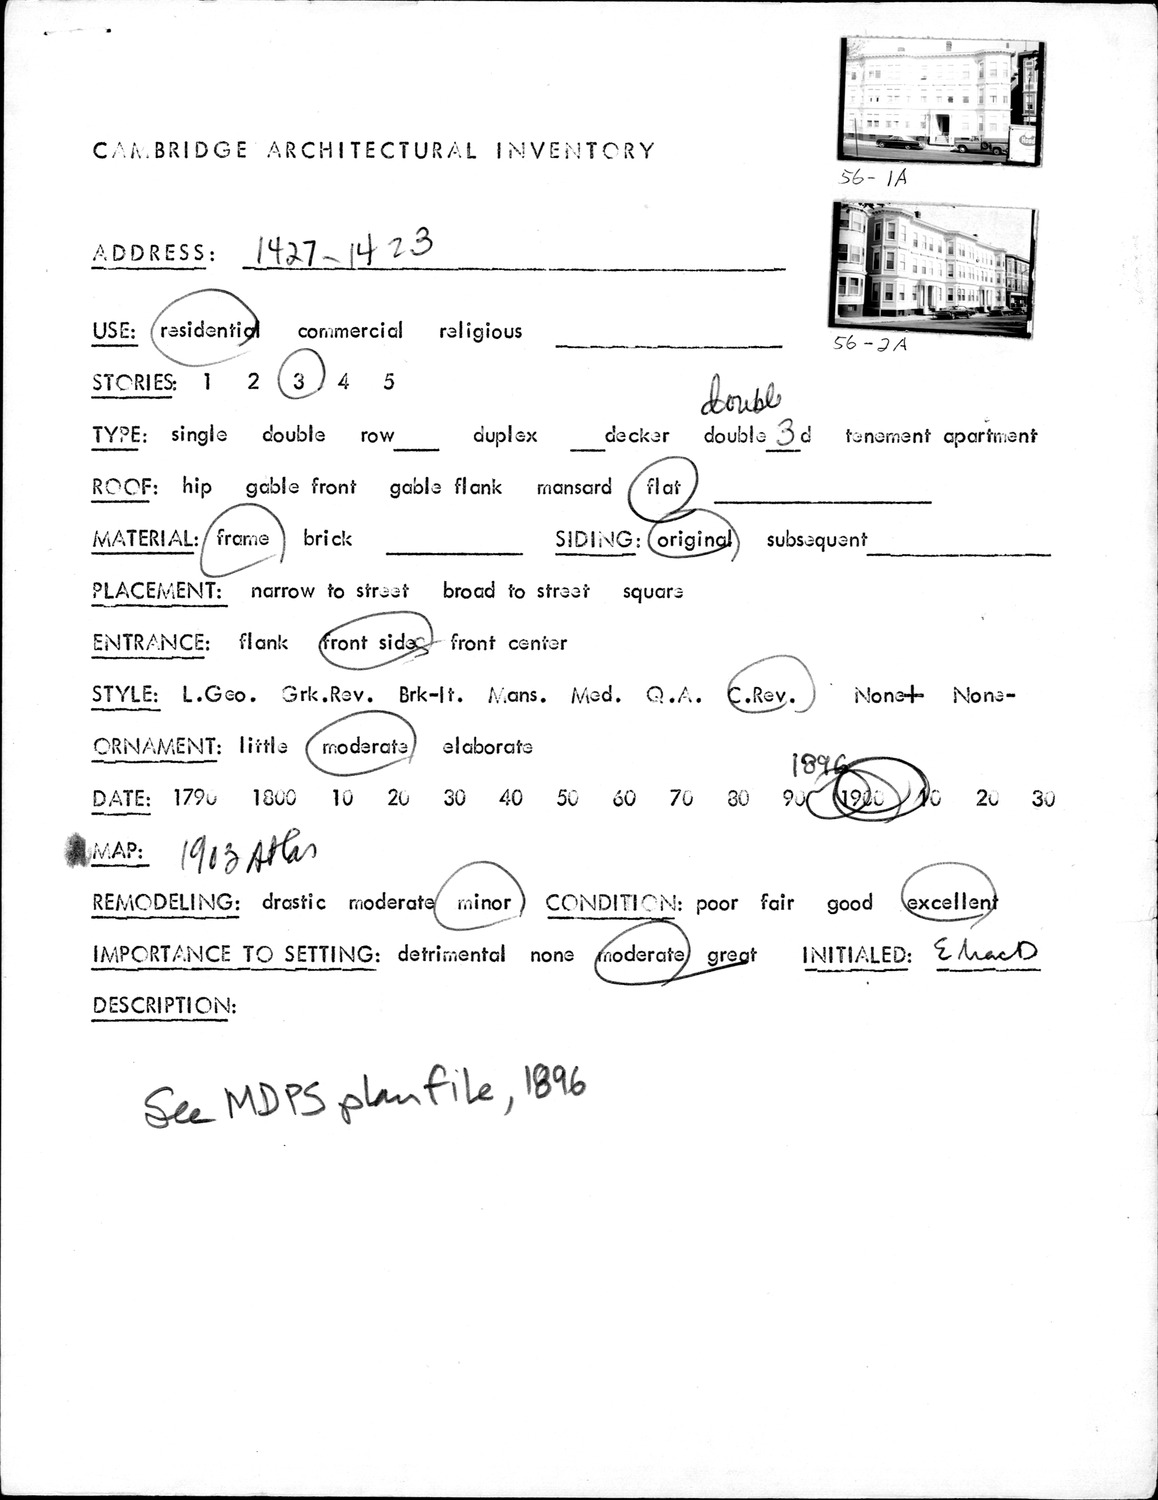 56-1A
CAMBRIDGE ARCHITECTURAL INVENTORY
56-2A
ADDRESS: 1427-1423
USE: residential commercial religious
STORIES: 1 2 3 4 5
double
TYPE: single double row___ duplex ___decker double 3d tenement apartment
ROOF: hip gable front gable flank mansard flat
MATERIAL: frame brick SIDING: original subsequent
PLACEMENT: narrow to street broad to street square
ENTRANCE: flank front sides front center
STYLE: L.Geo. Grk.Rev. Brk-It. Mans. Med. Q.A. C.Rev. None+ None-
ORNAMENT: little moderate elaborate
1896
DATE: 1790 1800 10 20 30 40 50 60 70 80 90 1900 10 20 30
MAP: 1903 Atlas
REMODELING: drastic moderate minor CONDITION: poor fair good excellent
IMPORTANCE TO SETTING: detrimental none moderate great INITIALED: E MacD
DESCRIPTION:
See MDPS plan file, 1896